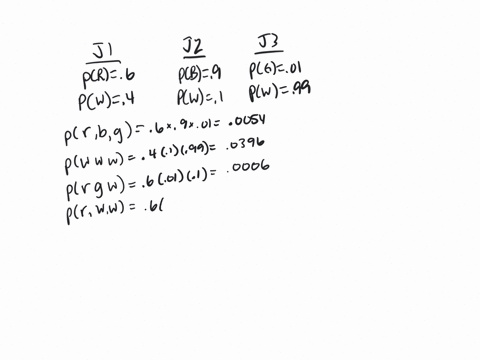 J1 J2 J3
p(R)=.6 P(B)=.9 P(G)=.01
P(W)=.4 P(W)=.1 P(W)=.99
p(r,b,g)= .6 × .9 × .01 = .0054
p(w w w) = .4(.1)(.99)= .0396
p(r g w) = .6(.01)(.1)= .0006
p(r, w,w) = .6(